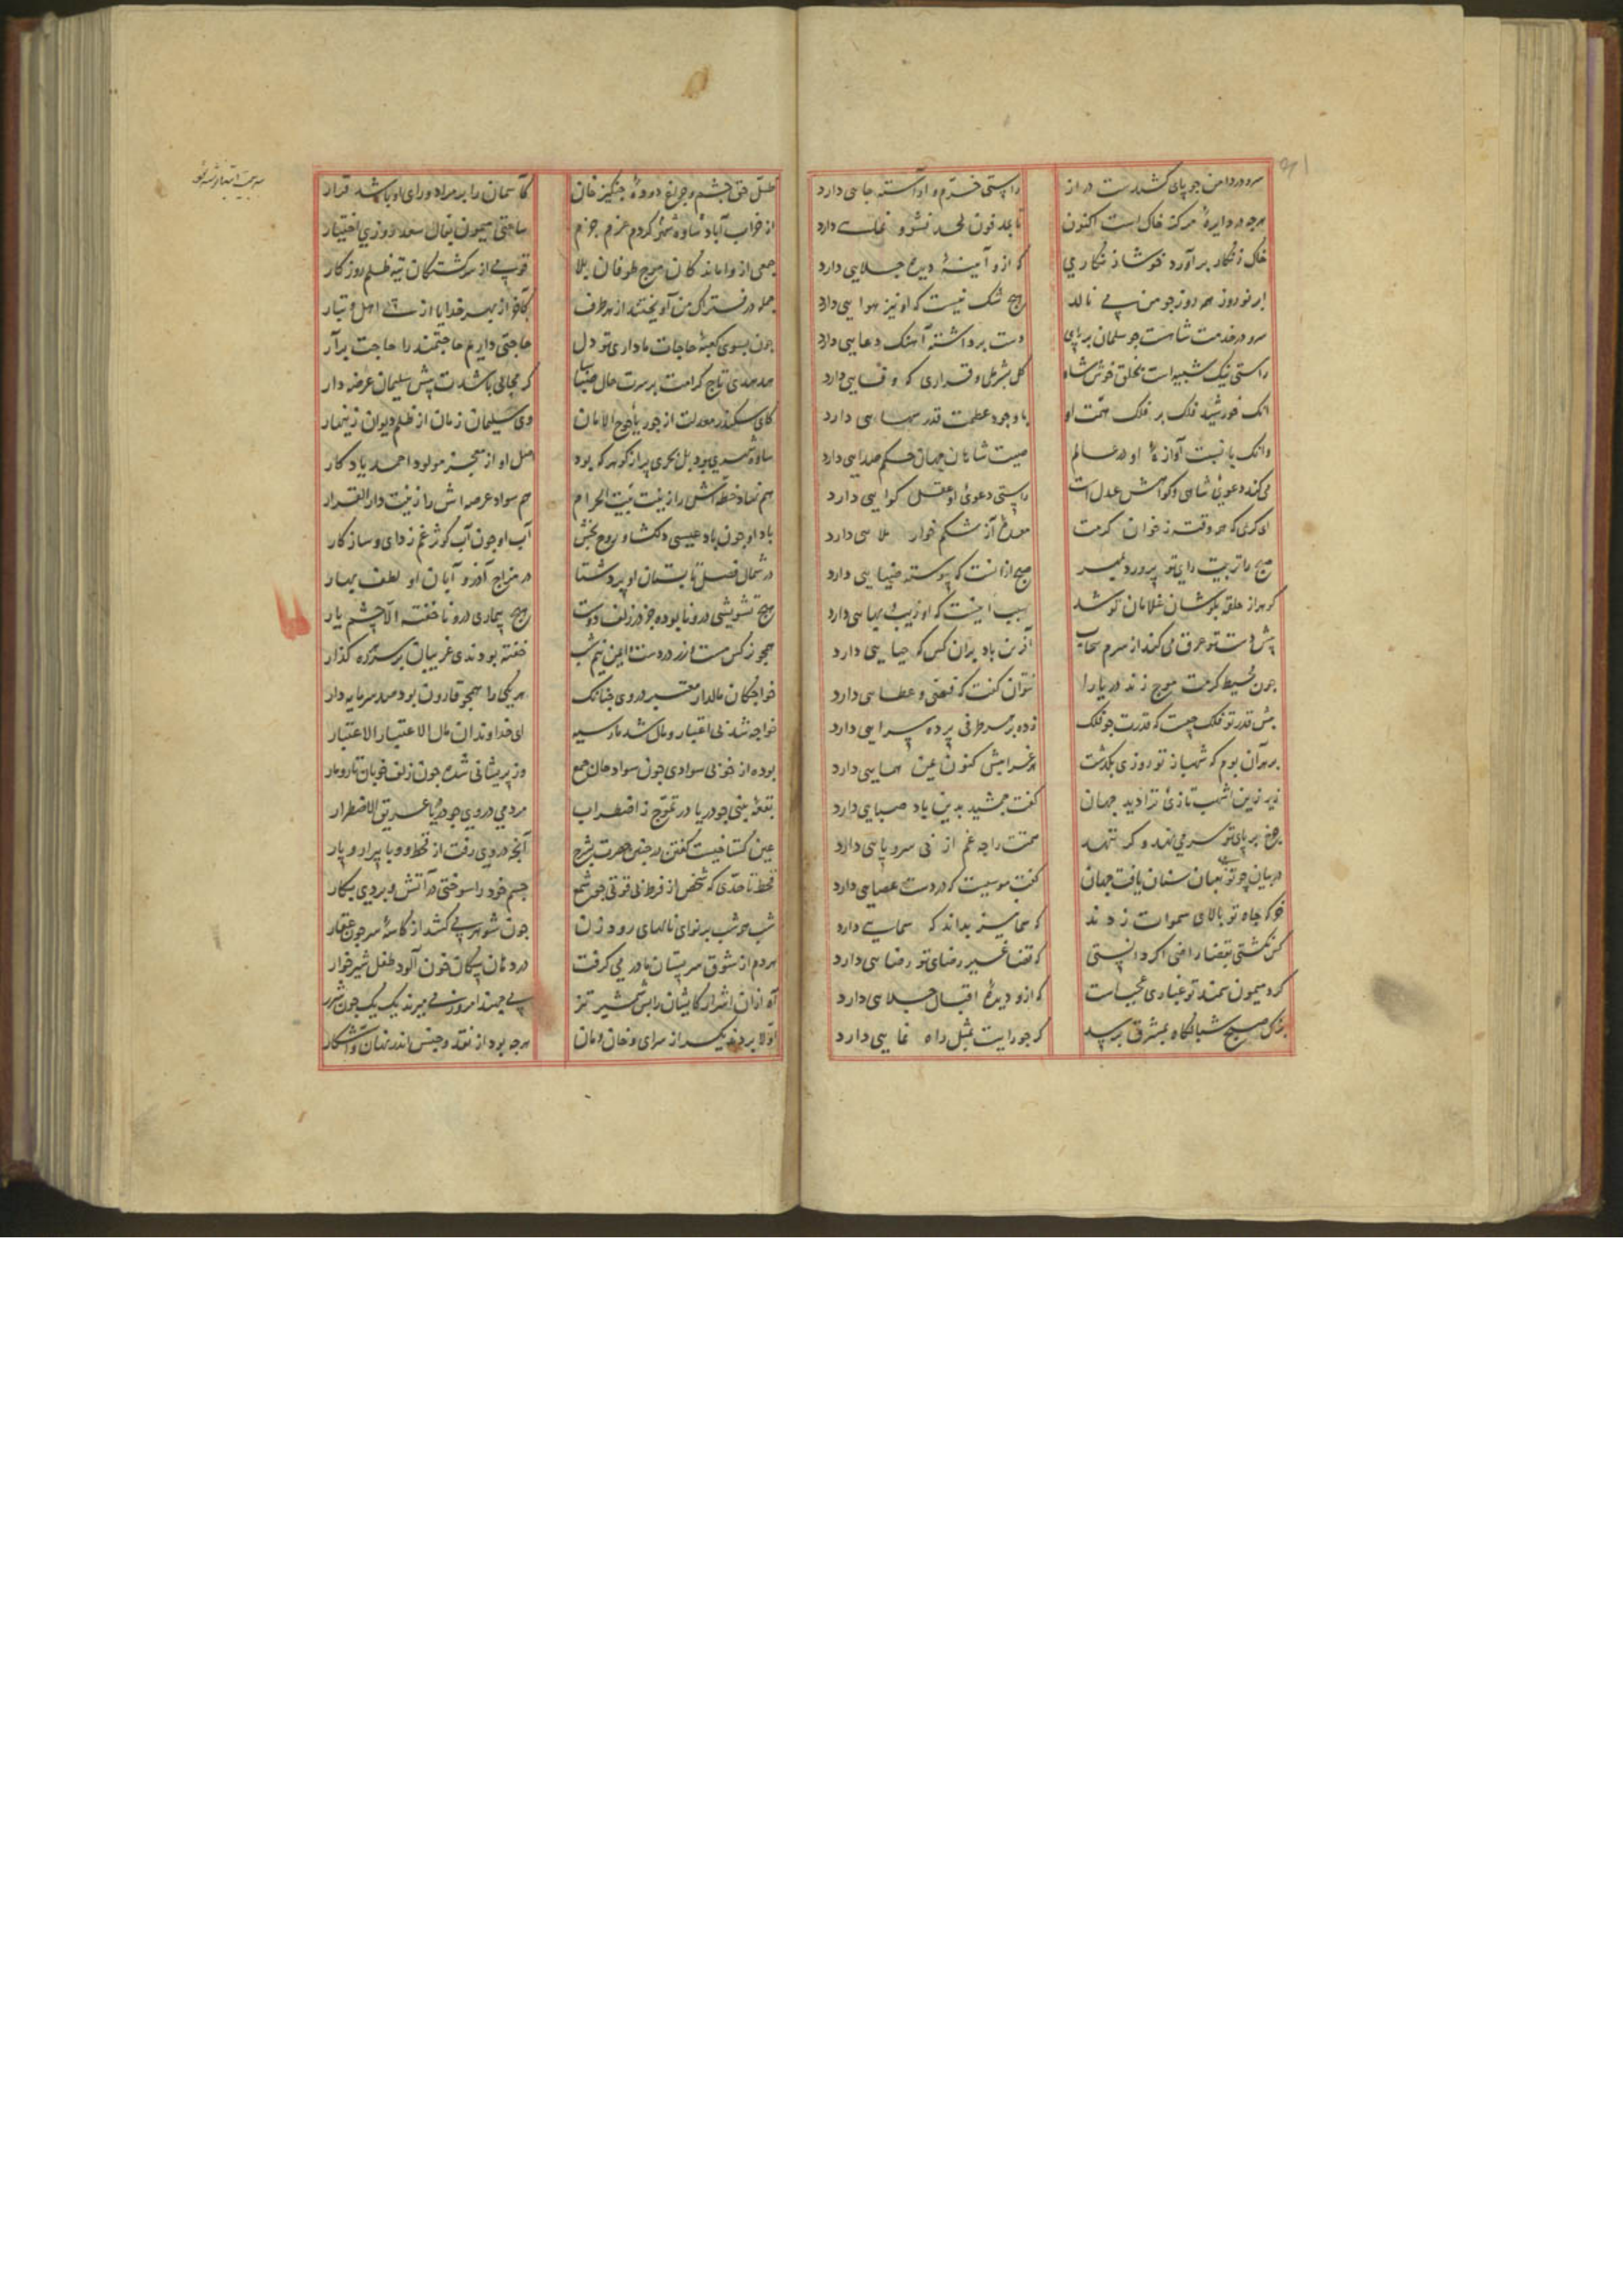 سرو در دامن جو پای کشیدست دراز راستی خرّم و آراسته جایی دارد
هرچه در دایرهٔ مرکز خاک است اکنون
خاک زنگار برآورد خوشا زنگاری که ازو آینهٔ دیده جلایی دارد
ابر نوروز همه روز چو من می نالد هیچ شک نیست که او نیز هوایی دارد
سرو در خدمت شاهست چو سلمان بر پای دست برداشته آهنک دعایی دارد
راستی نیک شبیه است بخلق خوش شاه کل بشرطی و قراری که وفایی دارد
انک خورشید فلک بر فلک همّت او با وجود عظمت قدر سهایی دارد
وانک با نسبت آوازهٔ او در عالم صیت شاهان جهان حکم صدایی دارد
می کند دعوی شاهی و کواهش عدل است راستی دعوی او عقل کوایی دارد
ای کریمی که همه وقت ز خوان کرمت معدهٔ آز شکم خوار ملایی دارد
صبح را تربیت رای تو پرورد بمهر صبح ازانست که پیوسته ضیایی دارد
کوهر از حلقه بکوشان غلامان تو شد سبب اینست که او زیب و بهایی دارد
پیش دست تو عرق می کند از شرم سحاب آفرین باد بران کس که حیایی دارد
چون محیط کرمت موج زند دریا را نتوان کفت که فیضی و عطایی دارد
پیش قدر تو فلک چیست که قدرت چو فلک زده بر هر طرفی پرده سرایی دارد
بر هر آن بوم که شهباز تو روزی بکذشت هر غرابیش کنون عین همایی دارد
زیر زین اشهب تازی ترا دید جهان کفت جمشید بدین باد صبایی دارد
چرخ بر پای تو سر می نهد و کر ننهد همّتت را چه غم از بی سر و پایی دارد
در میان چو تو ثعبان سنان یافت جهان کفت موسیست که در دست عصایی دارد
خرکه جاه تو بالای سموات زدند که سما نیز بداند که سمایی دارد
کس نکشتی بقضا راضی اکر دانستی که قضا غیر رضای تو رضایی دارد
کرد میمون سمند تو غباری عجبست که ازو دیدهٔ اقبال جلایی دارد
ترک صبح شبانکاه بمشرق برسد کر چو رایت بمثل راه نمایی دارد
ظلّ حق چشم و چراغ دودهٔ چنکیز خان کآسمان را بر مراد و رای او باشد قرار
از خراب آباد ساوه کردم عزم جزم ساعتی میمون بفال سعد و روزی اختیار
جمعی از واماندکان موج طوفان بلا قومی از سرکشتکان تیه ظلم روزکار
جمله در فتراک من آویختند از هر طرف کآخر از بهر خدا
چون بسوی کعبهٔ حاجات ما داری تو دل حاجتی داریم حاجتمند را حاجت برآر
هدهدی تاج کرامت بر سرت حال سبا کر مجالی باشدت پیش سلیمان عرضه دار
کای سکندر معدلت از جور یاجوج الامان وی سلیمان زمان از ظلم دیوان زینهار
ساوه شهری بود بل بحری پر از کوهر که بود اهل او از معجز مولود احمد یادکار
هم نهاد خطّه اش را زینت بیت الحرام هم سواد عرصه اش را زینت دار القرار
باد او چون باد عیسی دلکشا و روح بخش آب او چون آب کوثر غم زدای و سازکار
در شمال فصل تابستان او برد شتا در مزاج آذر و آبان او لطف بهار
هیچ تشویشی درو نابوده جز در زلف دوست هیچ بیماری درو ناخفته الّا چشم یار
همچو نرکس مست زر در دست و ایمن نیم شب خفته بودندی غریبان بر سر ره کذار
خواجکان مالدار معتبر در وی چنانک هر یکی را همچو قارون بود صد سرمایه دار
خواجه شد بی اعتبار و مال شد مار سیه ای خداوندان مال الاعتبار الاعتبار
وز پریشانی شده چون زلف خوبان تار و مار
بقعهٔ بینی چو دریا در تموّج ز اضطراب مردمی در وی چو دریا غریق الاضطرار
عین کستاخیست کفتن در چنین حضرت بشرح آنچه در وی رفت از قحط و وبا پیرار و پار
قحط تا حدّی که شخص از فرط بی قوتی چو شمع جسم خود را سوختی در آتش و بردی بکار
شب همه شب بر نوای نالهای رود زن چون شوهر می کشد از کاسهٔ سر چون عقار
هر دم از شوق سر پستان مادر می کرفت در دهان پیکان خون آلود طفل شیر خوار
آه ازان اشرار کایشان را بشمشیر تیز
اوّلا بردند یکسر از سرای و خان و مان هرچه بود از نقد و جنس اندر نهان و آشکار